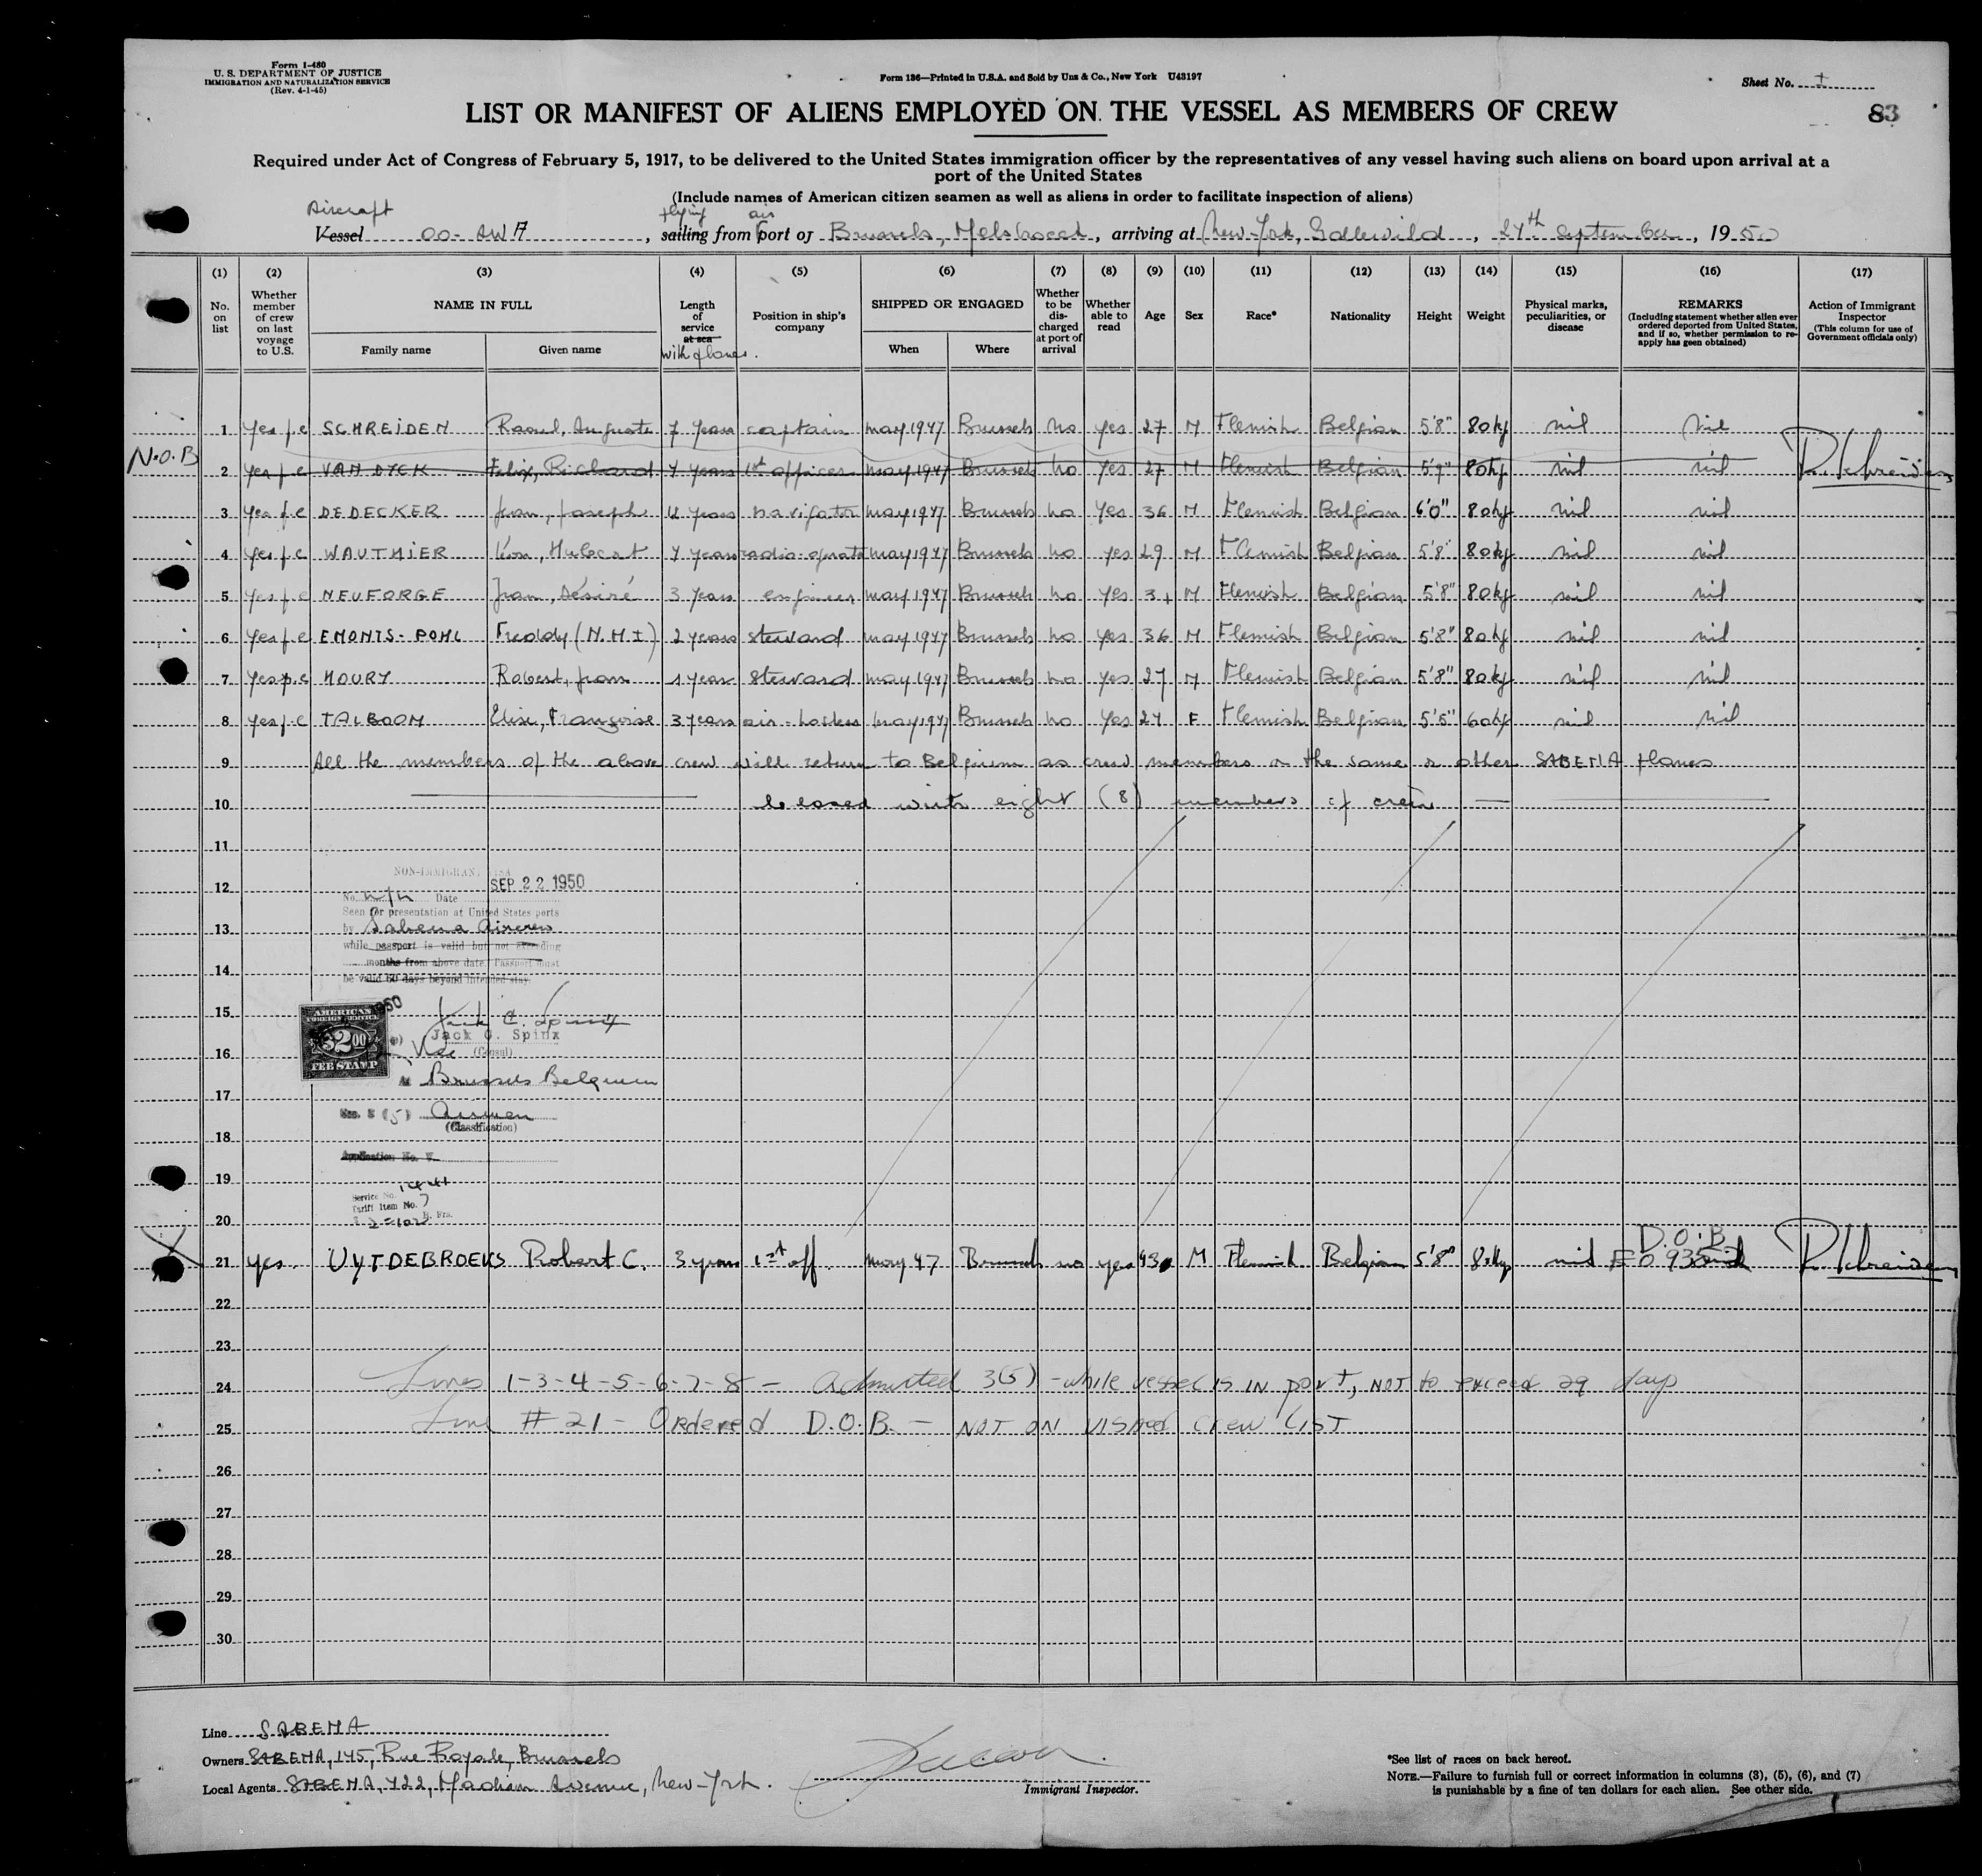 Form I-480
U. S. DEPARTMENT OF JUSTICE
IMMIGRATION AND NATURALIZATION SERVICE
(Rev. 4-1-45)
Form 136—Printed in U.S.A. and Sold by Unz & Co., New York U43197
Sheet No. I
83
LIST OR MANIFEST OF ALIENS EMPLOYED ON THE VESSEL AS MEMBERS OF CREW
Required under Act of Congress of February 5, 1917, to be delivered to the United States immigration officer by the representatives of any vessel having such aliens on board upon arrival at a
port of the United States
(Include names of American citizen seamen as well as aliens in order to facilitate inspection of aliens)
Aircraft flying air
Vessel OO-AWA, sailing from port of Brussels, Melsbroeck, arriving at New-York, Idlewild, 24th September, 1950
(1) (2) (3) (4) (5) (6) (7) (8) (9) (10) (11) (12) (13) (14) (15) (16) (17)
No. on list
Whether member of crew on last voyage to U.S.
NAME IN FULL
Family name
Given name
Length of service at sea
with planes.
Position in ship's company
SHIPPED OR ENGAGED
When
Where
Whether to be discharged at port of arrival
Whether able to read
Age
Sex
Race*
Nationality
Height
Weight
Physical marks, peculiarities, or disease
REMARKS
(Including statement whether alien ever ordered deported from United States, and if so, whether permission to re-apply has geen obtained)
Action of Immigrant Inspector
(This column for use of Government officials only)
1 Yes p.c SCHREIDEN Raoul, Auguste 7 years captain may 1947 Brussels no yes 27 M Flemish Belgian 5'8" 80kg nil nil
N.O.B 2 yes p.c VAN DYCK Felix, Richard 7 years 1st officer may 1947 Brussels no yes 27 M Flemish Belgian 5'9" 80kg nil nil R. Schreiden
3 Yes p.c DEDECKER Jean, Joseph 4 years navigator may 1947 Brussels no yes 36 M Flemish Belgian 6'0" 80kg nil nil
4 Yes p.c WAUTHIER Léon, Hubert 7 years radio-operator may 1947 Brussels no yes 29 M Flemish Belgian 5'8" 80kg nil nil
5 Yes p.c NEUFORGE Jean, Désiré 3 years engineer may 1947 Brussels no yes 31 M Flemish Belgian 5'8" 80kg nil nil
6 Yes p.c EMONTS-POHL Freddy (N.M.I) 2 years steward may 1947 Brussels no yes 36 M Flemish Belgian 5'8" 80kg nil nil
7 Yes p.c HOURY Robert, Jean 1 year steward may 1947 Brussels no yes 27 M Flemish Belgian 5'8" 80kg nil nil
8 yes p.c TALBOOM Elise, Françoise 3 years air-hostess may 1947 Brussels no yes 27 F Flemish Belgian 5'5" 60kg nil nil
9 All the members of the above crew will return to Belgium as crew members on the same or other SABENA planes
10 closed with eight (8) members of crew
11
12 NON-IMMIGRANT VISA
No. Date SEP 22 1950
Seen for presentation at United States ports
13 by Sabena Aircrew
while passport is valid but not exceeding
14 months from above date. Passport must
be valid 60 days beyond intended stay.
15 AMERICAN FOREIGN SERVICE
$2.00
FEE STAMP
1950
Jack C. Spinx
16 Vice (Consul)
At Brussels Belgium
17 Sec. 3 (5) Airmen
(Classification)
18 Application No. V.
19 Service No. 1441
Tariff Item No. 7
20
21 yes. UYTDEBROEKS Robert C. 3 years 1st off. may 47 Brussels no yes 43 M Flemish Belgian 5'8" 80kg nil D.O.B. R. Schreiden
22
23
24 Lines 1-3-4-5-6-7-8 - Admitted 3(5) - while vessel is in port, not to exceed 29 days
25 Line #21 - Ordered D.O.B. - NOT ON VISAED CREW LIST
26
27
28
29
30
Line SABENA
Owners SABENA, 145, Rue Royale, Brussels
Local Agents SABENA, 422, Madison Avenue, New-York.
Immigrant Inspector.
*See list of races on back hereof.
NOTE.—Failure to furnish full or correct information in columns (3), (5), (6), and (7)
is punishable by a fine of ten dollars for each alien. See other side.